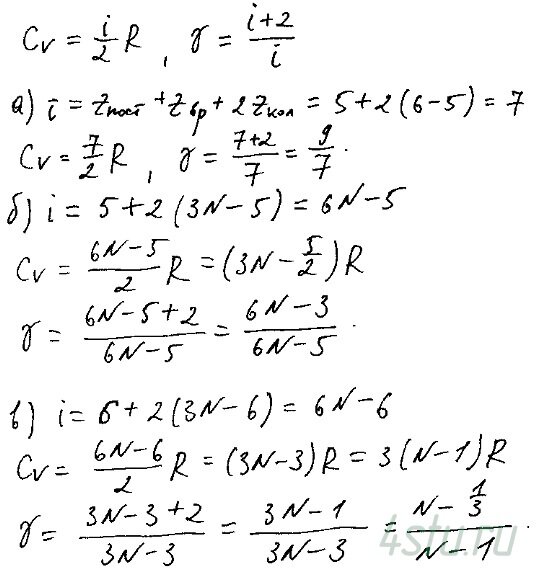 Cv = i/2 R , γ = i+2/i
а) i = Zпост + Zвр + 2Zкол = 5+2(6-5) = 7
Cv = 7/2 R , γ = 7+2/7 = 9/7 .
б) i = 5+2(3N-5) = 6N-5
Cv = 6N-5/2 R = (3N - 5/2)R
γ = 6N-5+2/6N-5 = 6N-3/6N-5 .
в) i = 6+2(3N-6) = 6N-6
Cv = 6N-6/2 R = (3N-3)R = 3(N-1)R
γ = 3N-3+2/3N-3 = 3N-1/3N-3 = N-1/3/N-1 .
4stu.ru